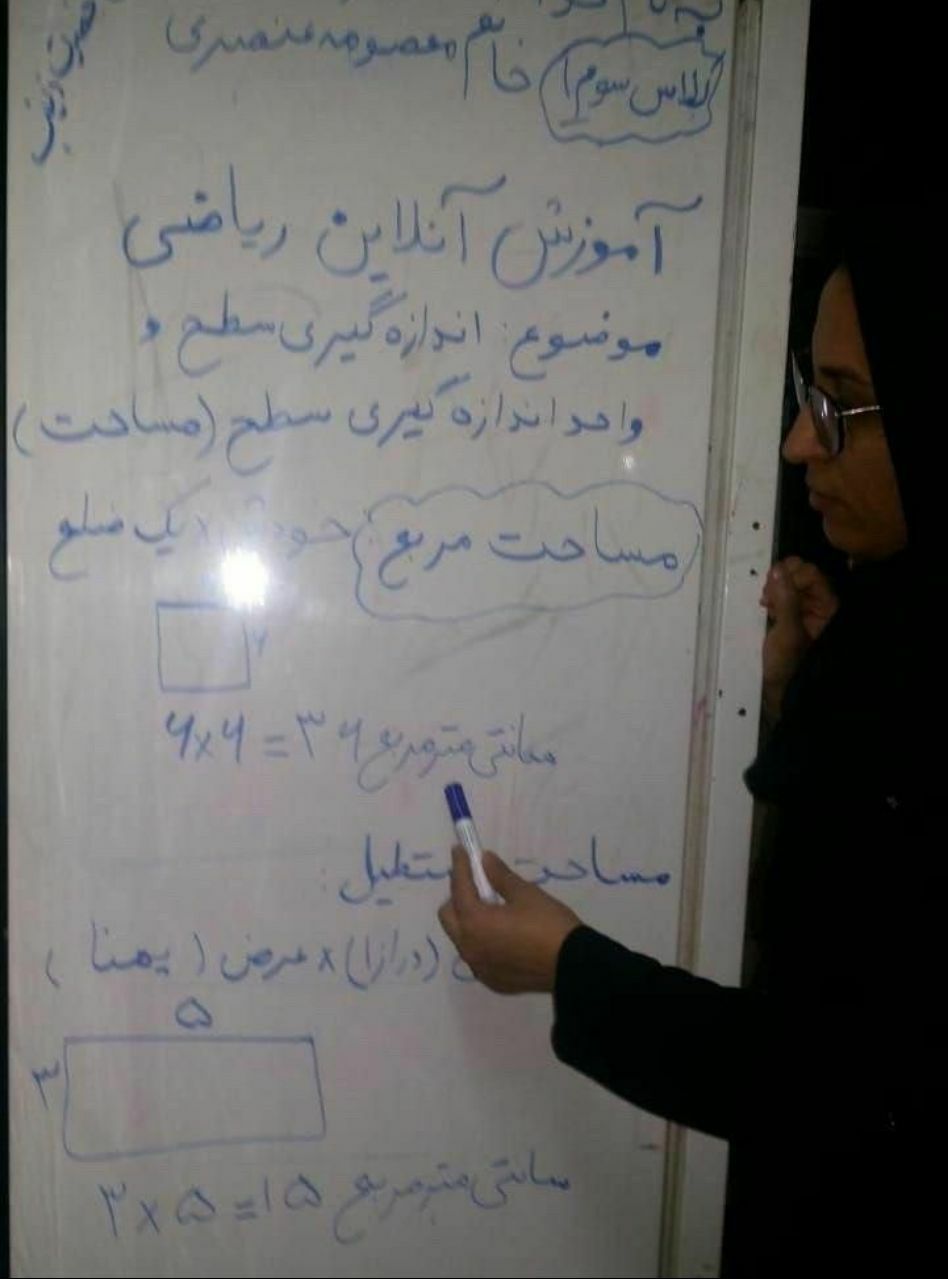 کلاس سوم ۱ خانم معصومه منصری
حضرت زینب
آموزش آنلاین ریاضی
موضوع: اندازه گیری سطح و
واحد اندازه گیری سطح (مساحت)
مساحت مربع: یک ضلع
۶
۶×۶=۳۶ سانتی متر مربع
مساحت
(درازا) × عرض (پهنا)
۵
۳
۳×۵=۱۵ سانتی متر مربع